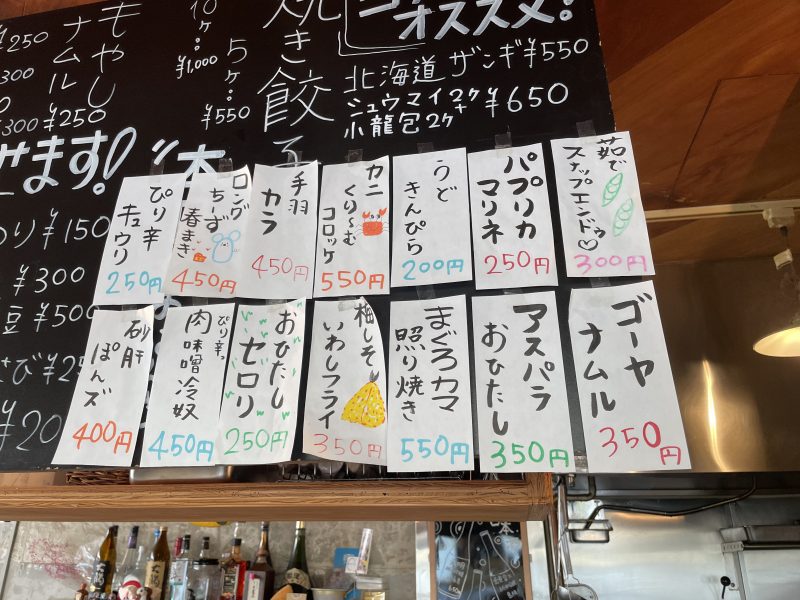 オススメ!
北海道 ザンギ ¥550
シュウマイ2ケ+
小龍包2ケ
¥650
焼き餃子
5ケ…
¥550
10ケ…
¥1,000
もやし
ナムル
¥250
¥250
¥300
せます!
¥150
¥300
¥500
茹で
スナップエンドゥ♡
300円
パプリカ
マリネ
250円
うど
きんぴら
200円
カニ
くり〜む
コロッケ
550円
手羽
カラ
450円
ロング
ちーず
春まき
450円
ぴり辛
キュウリ
250円
ゴーヤ
ナムル
350円
アスパラ
おひたし
350円
まぐろカマ
照り焼き
550円
梅しそ
いわしフライ
350円
おひたし
セロリ
250円
ぴり辛。
肉味噌冷奴
450円
砂肝
ぽんズ
400円